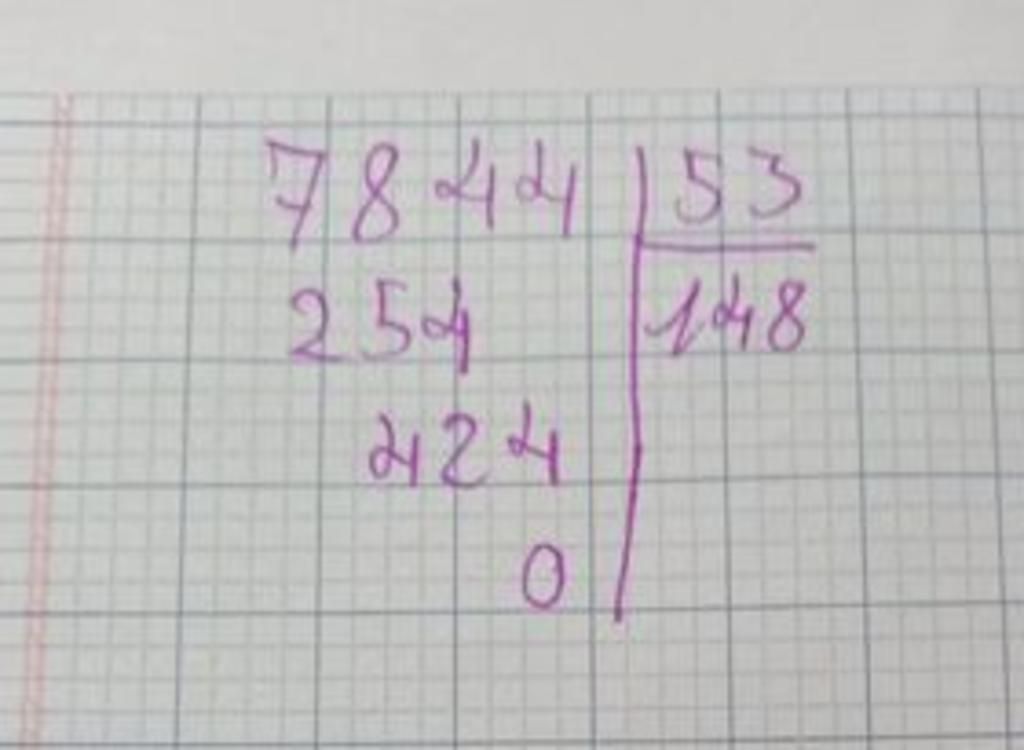 7844 53
254 148
424
0